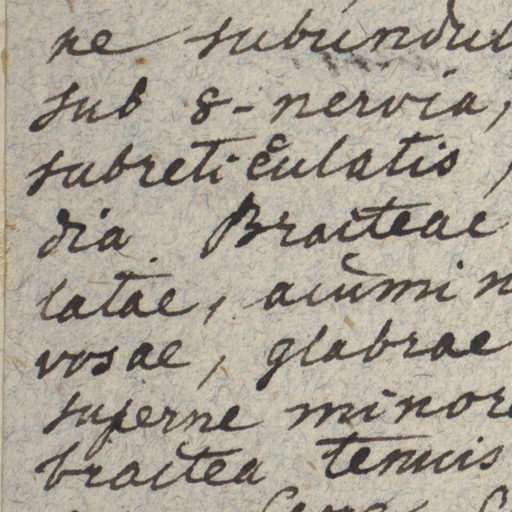 ne subundul
sub 8-nervia,
subreticulatis,
dia. Bracteae
latae, acumin
vosae, glabrae
superne minor
bractea tenuis